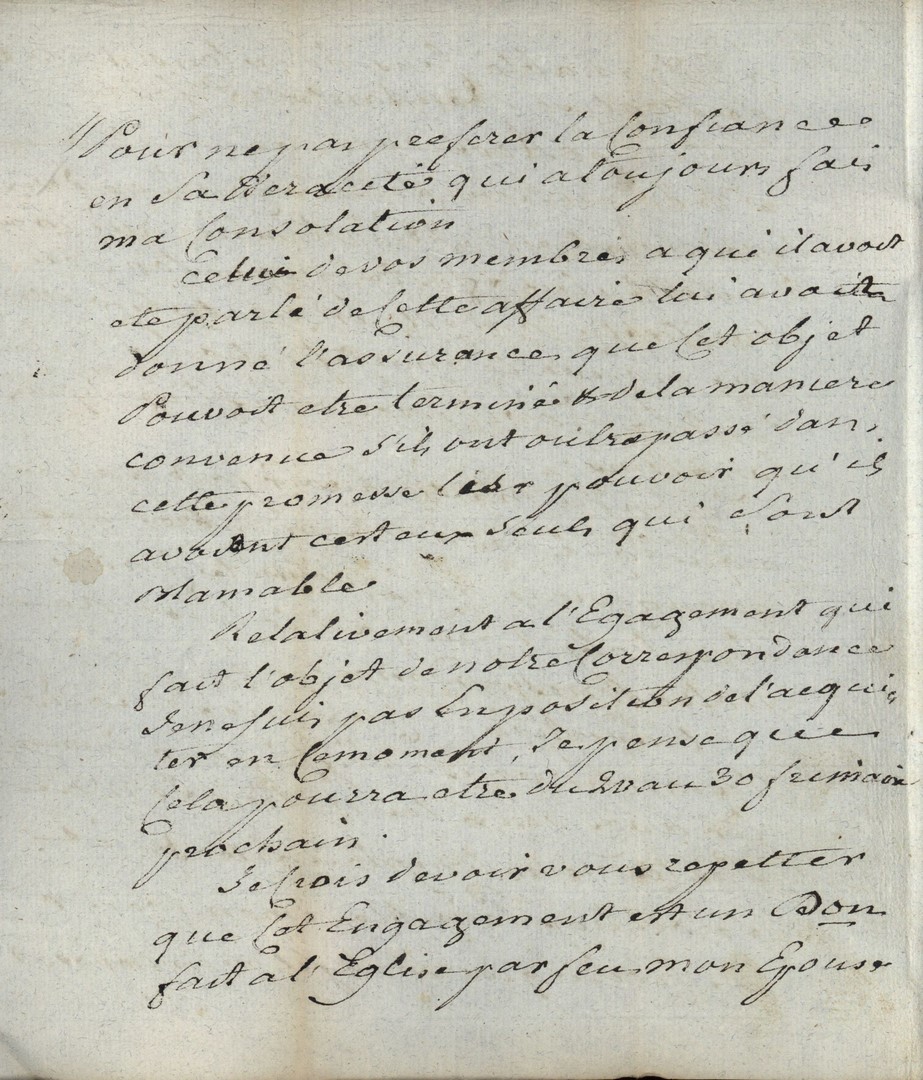 Pour ne pas preferer la Confiance
en Sa Veracité qui a Toujours fais
ma Consolation
Celui de vos membres a qui il avoit
ete parlé de Cette affaire lui avoit
donné l'assurance que Cet objet
Pouvoit etre terminé & de la maniere
convenue S'ils ont oultrepassé dans
cette promesse les pouvoir qu'ils
avoient cest eux Seuls qui Sont
Blamable
Relativement a l'Egagement qui
fait l'objet de notre Correspondance
Je ne suis pas En position de l'acquis
ter en Ce moment, Je pense que
Cela pourra etre du 20 au 30 frimaire
prochain.
Je Crois devoir vous repetter
que Cet Engagement est un Don
fait a l'Eglise par feu mon Epouse